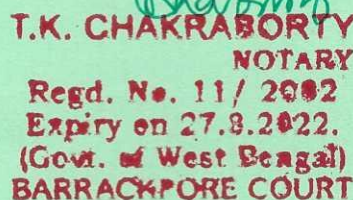 T.K. CHAKRABORTY
NOTARY
Regd. No. 11/ 2002
Expiry on 27.8.2022.
(Govt. of West Bengal)
BARRACKPORE COURT